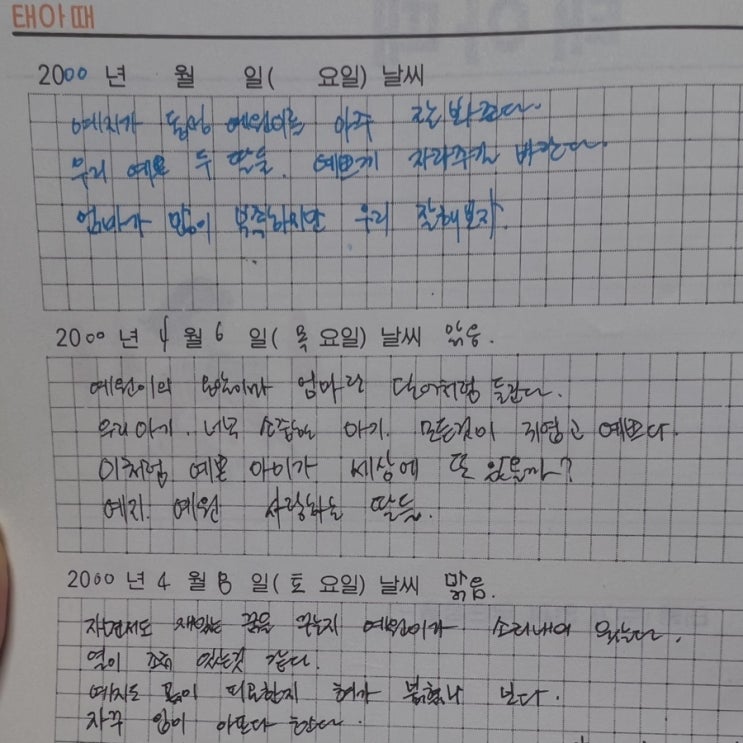 태아때
2000 년 월 일( 요일) 날씨
예지가 동생 예원이를 아주 잘 봐준다.
우리 예쁜 두 딸들. 예쁘게 자라주길 바란다.
엄마가 많이 부족하지만 우리 잘해보자.
2000 년 4 월 6 일(목 요일) 날씨 맑음.
예원이의 엄마란 단어처럼 들린다.
우리 아기. 너무 소중한 아기. 모든것이 귀엽고 예쁘다.
이처럼 예쁜 아이가 세상에 또 있을까?
예지. 예원 사랑하는 딸들.
2000 년 4 월 8 일(토 요일) 날씨 맑음.
자면서도 재밌는 꿈을 꾸는지 예원이가 소리내어 웃는다.
열이 조금 있는것 같다.
예지도 몸이 피곤한지 혀가 보다.
자꾸 입이 아프다 한다.